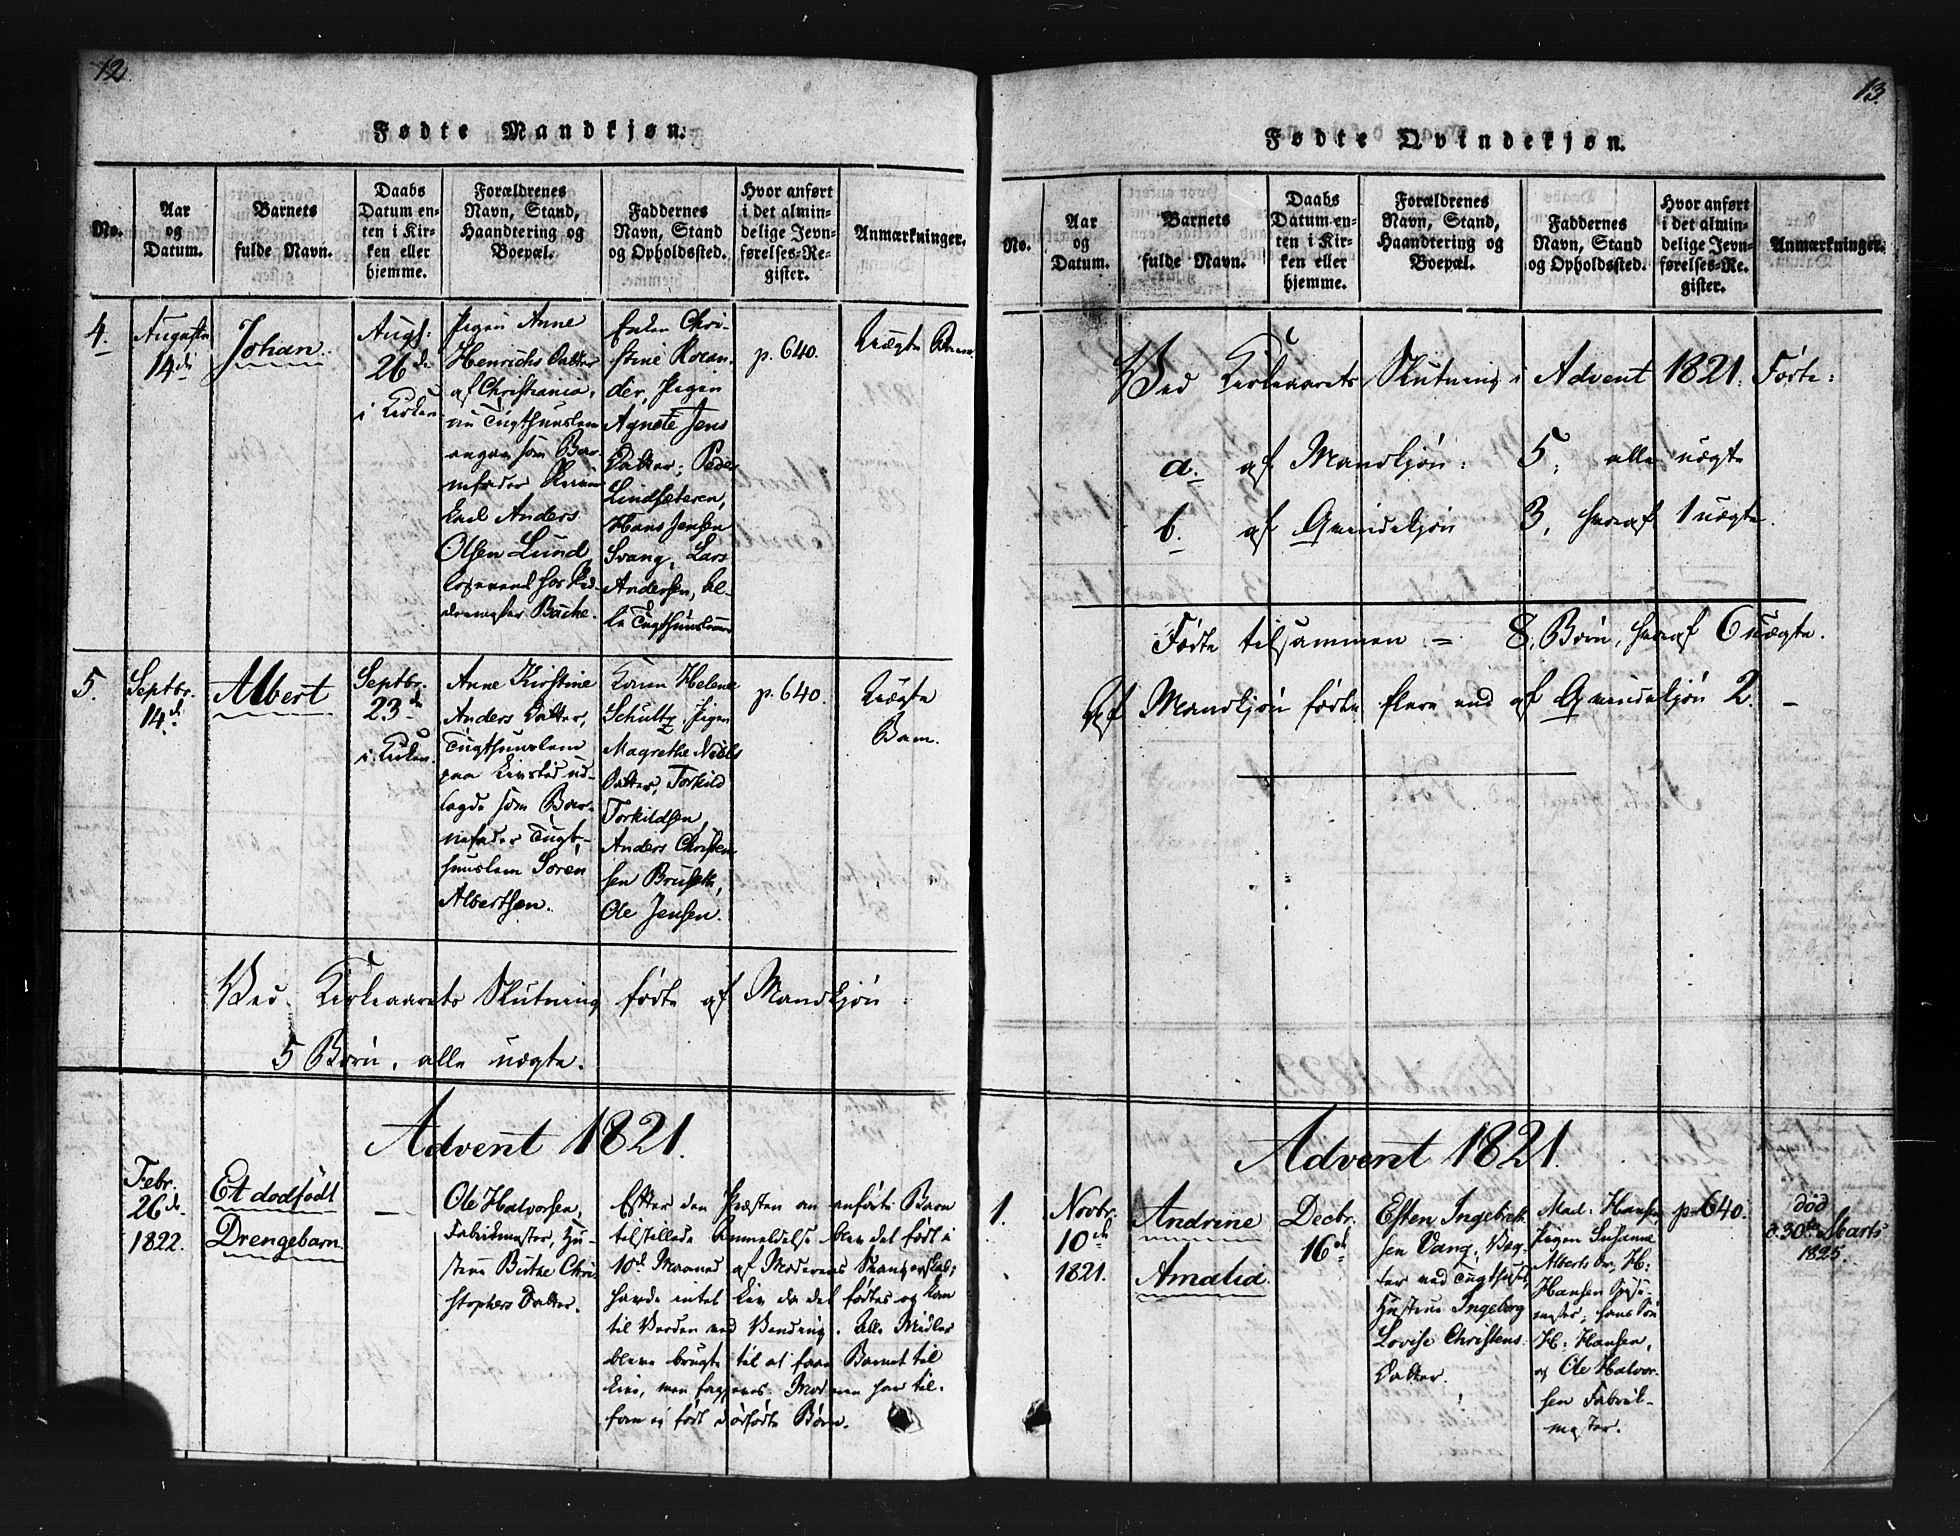 12.
Fødte Mandkjøn.
No.
Aar
og
Datum.
Barnets
fulde Navn.
Daabs
Datum en-
ten i Kir-
ken eller
hjemme.
Forældrenes
Navn, Stand,
Haandtering og
Boepæl.
Faddernes
Navn, Stand
og Opholdssted.
Hvor anført
i det almin-
delige Jevn-
førelses-Re-
gister.
Anmærkninger.
4.
Augusti
14de
Johan.
Augs:
26de
i Kirken
Pigen Anne
Henrichs Datter
af Christiania,
nu Tugthuuslem
angav som Bar-
nefader
Carl Anders
Olsen Lund
logerend hos
Bache.
Enken Chri-
stine
der, Pigen
Agnete Jens
Datter; Peder
Lindsæteren,
Hans Jensen
Svang, Lars
Andersen, al-
le Tugthuuslemmer
p. 640.
Uægte Barn
5.
Septbr.
14de
Albert
Septbr.
23de
i Kirken.
Anne Kirstine
Anders Datter,
Tugthuuslem
paa Livstid ud-
lagde som Bar-
nefader Tugt-
huuslem Sören
Albertsen.
Karen Helene
Schultz, Pigen
Magrethe Niels
Datter, Torkild
Torkildsen,
Anders Christen
sen Bruseth,
Ole Jensen.
p. 640
Uægte
Barn.
Ved Kirkeaarets Slutning födte af Mandkjön:
5 Børn, alle uægte.
Advent 1821.
Febr.
26de
1822.
Et dödfödt
Drengebarn.
—
Ole Halvorsen,
Fabrikmester, Hu-
struen Birthe Chri
stophers Datter.
Efter den Præsten om anförte Barn
tilstillede Anmeldelse blev det födt i
10de Maaned af Moderens Svangerskab;
havde intet Liv da det födtes og kom
til Verden ved Vending. Alle Midler
bleve brugte til at faae Barnet til
Live, men forgjeves. Moderen har til-
forn ei födt dödfödte Børn.
13.
Fødte Qvindekjøn.
No.
Aar
og
Datum.
Barnets
fulde Navn.
Daabs
Datum en-
ten i Kir-
ken eller
hjemme.
Forældrenes
Navn, Stand,
Haandtering og
Boepæl.
Faddernes
Navn, Stand
og Opholdssted.
Hvor anført
i det almin-
delige Jevn-
førelses-Re-
gister.
Anmærkninger.
Ved Kirkeaarets Slutning i Advent 1821. Födte:
a. af Mandkjön: 5, alle uægte
b. af Qvindekjön 3, heraf 1 uægte.
Födte tilsammen = 8 Börn, heraf 6 uægte.
Af Mandkjön födte flere end af Qvindekjön 2. —
Advent 1821.
1.
Novbr.
10de
1821.
Andrine
Amalia.
Decbr.
16de
Esten Ingebret
sen Vang, Væg-
ter ved Tugthuset,
Hustrue Ingeborg
Lovise Christens
Datter.
Mad: Hansen,
Pigen Susanne
Alberts Dr, H:
Hansen Spise-
mester, hans Sön
H: Hansen,
og Ole Halvor-
sen Fabrik-
mester.
p. 640.
död
d. 30te Marts
1825.